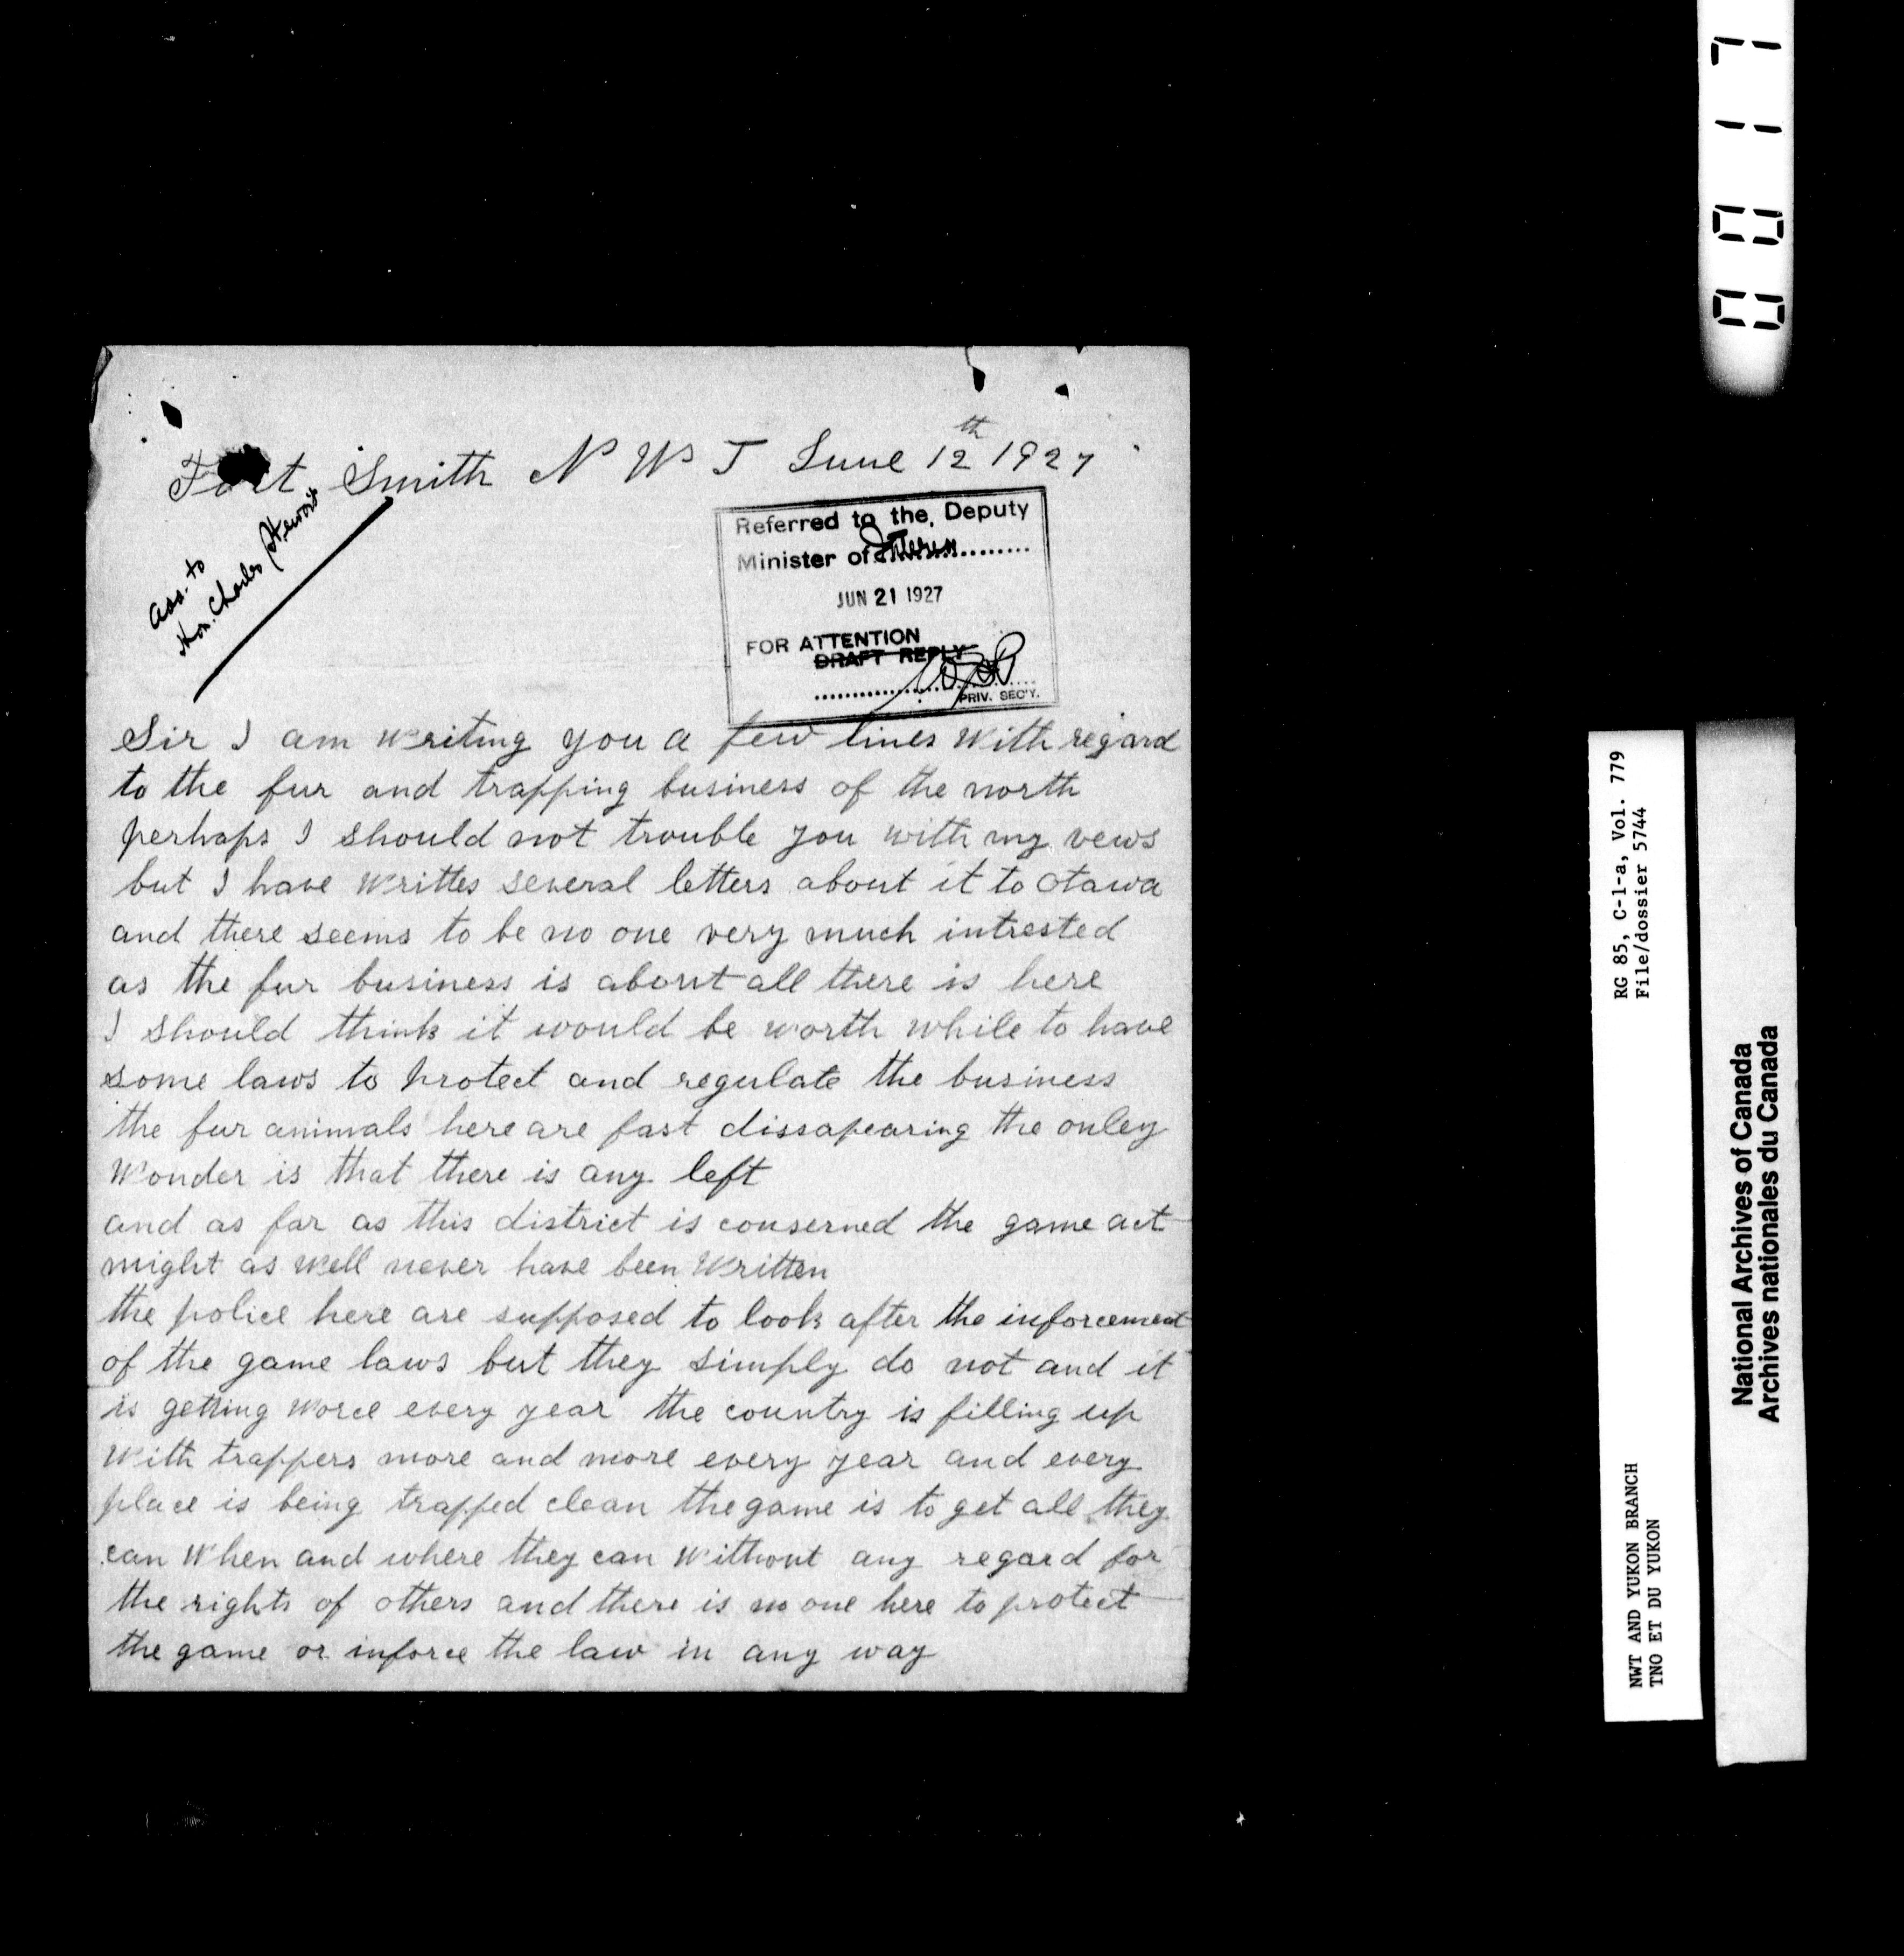 Fort Smith N W T June 12th 1927
Ads. to
Hon. Charles Stewart
Referred to the Deputy
Minister of Interior
JUN 21 1927
FOR ATTENTION
DRAFT REPLY
PRIV. SEC'Y.
Sir I am writing you a few lines with regard
to the fur and trapping business of the north
perhaps I should not trouble you with my vews
but I have writtes several letters about it to Otawa
and there seems to be no one very much intrested
as the fur business is about all there is here
I should think it would be worth while to have
some laws to protect and regulate the business
the fur animals here are fast dissapearing the onley
wonder is that there is any left
and as far as this district is conserned the game act
might as well never have been written
the police here are supposed to look after the inforcement
of the game laws but they simply do not and it
is getting worce every year the country is filling up
with trappers more and more every year and every
place is being trapped clean the game is to get all they
can when and where they can without any regard for
the rights of others and there is no one here to protect
the game or inforce the law in any way
0017
RG 85, C-1-a, Vol. 779
File/dossier 5744
NWT AND YUKON BRANCH
TNO ET DU YUKON
National Archives of Canada
Archives nationales du Canada